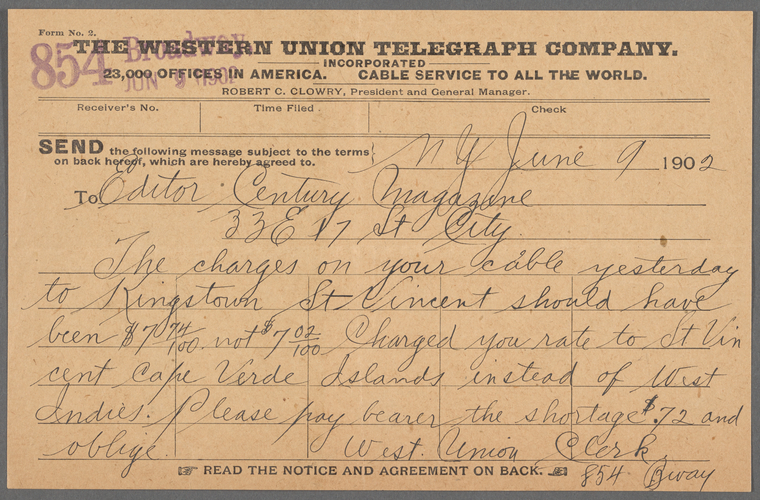 Form No. 2.
854 Broadway
JUN 9 1902
THE WESTERN UNION TELEGRAPH COMPANY.
INCORPORATED
23,000 OFFICES IN AMERICA. CABLE SERVICE TO ALL THE WORLD.
ROBERT C. CLOWRY, President and General Manager.
Receiver's No. Time Filed Check
SEND the following message subject to the terms
on back hereof, which are hereby agreed to.
N Y June 9 1902
To Editor Century Magazine
33 E 17 St City
The charges on your cable yesterday
to Kingstown St Vincent should have
been $7 74/100 not $7 02/100 Charged you rate to St Vin
cent Cape Verde Islands instead of West
Indies. Please pay bearer the shortage $.72 and
oblige. West. Union Clerk
READ THE NOTICE AND AGREEMENT ON BACK.
854 Bway